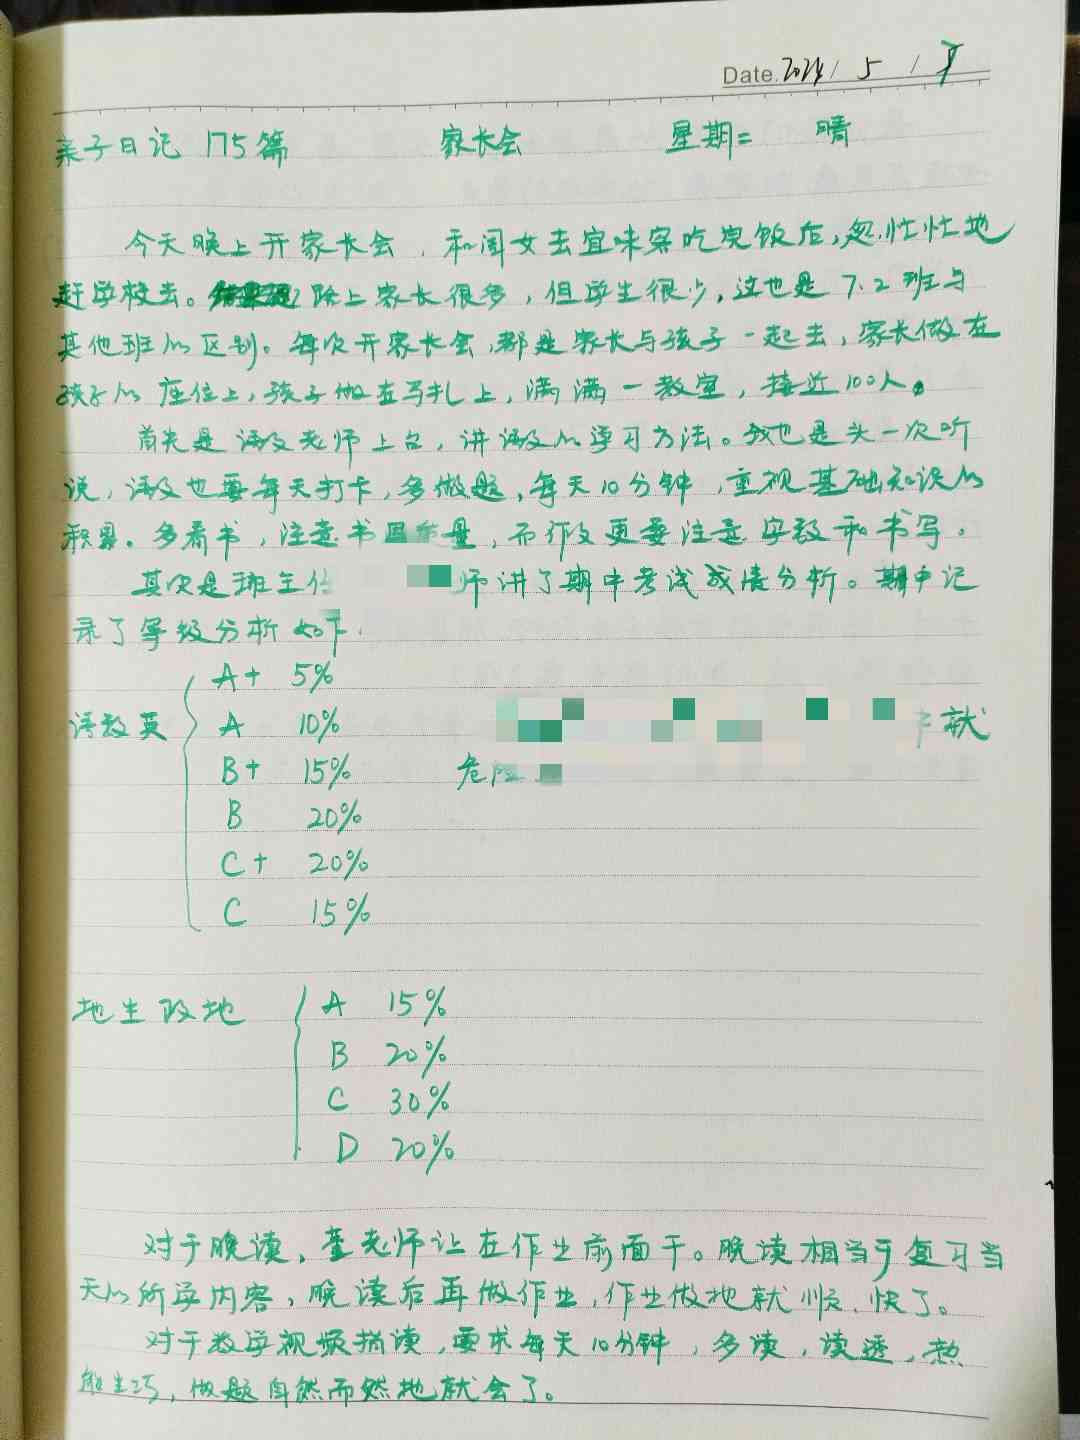 Date. 2024 / 5 / 7
亲子日记 175篇 家长会 星期二 晴
今天晚上开家长会，和闺女去宜味寨吃完饭后，忽忙忙地
赶学校去。路上家长很多，但学生很少，这也是 7.2 班与
其他班的区别。每次开家长会，都是家长与孩子一起去，家长做在
孩子的座位上，孩子做在马扎上，满满一教室，接近100人。
首先是语文老师上台，讲语文的学习方法。我也是头一次听
说，语文也要每天打卡，多做题，每天10分钟，重视基础知识的
积累。多看书，注意书 量，而作文更要注意字数和书写。
其次是班主任 师讲了期中考试成绩分析。期中记
录了等级分析如下.
A+ 5%
语数英 A 10% 就
B+ 15% 危险
B 20%
C+ 20%
C 15%
地生政地 A 15%
B 20%
C 30%
D 20%
对于晚读，老师让在作业前面干。晚读相当于复习当
天的所学内容，晚读后再做作业，作业做地就顺、快了。
对于数学视频捎读，要求每天10分钟，多读，读透，熟
能生巧，做题自然而然地就会了。